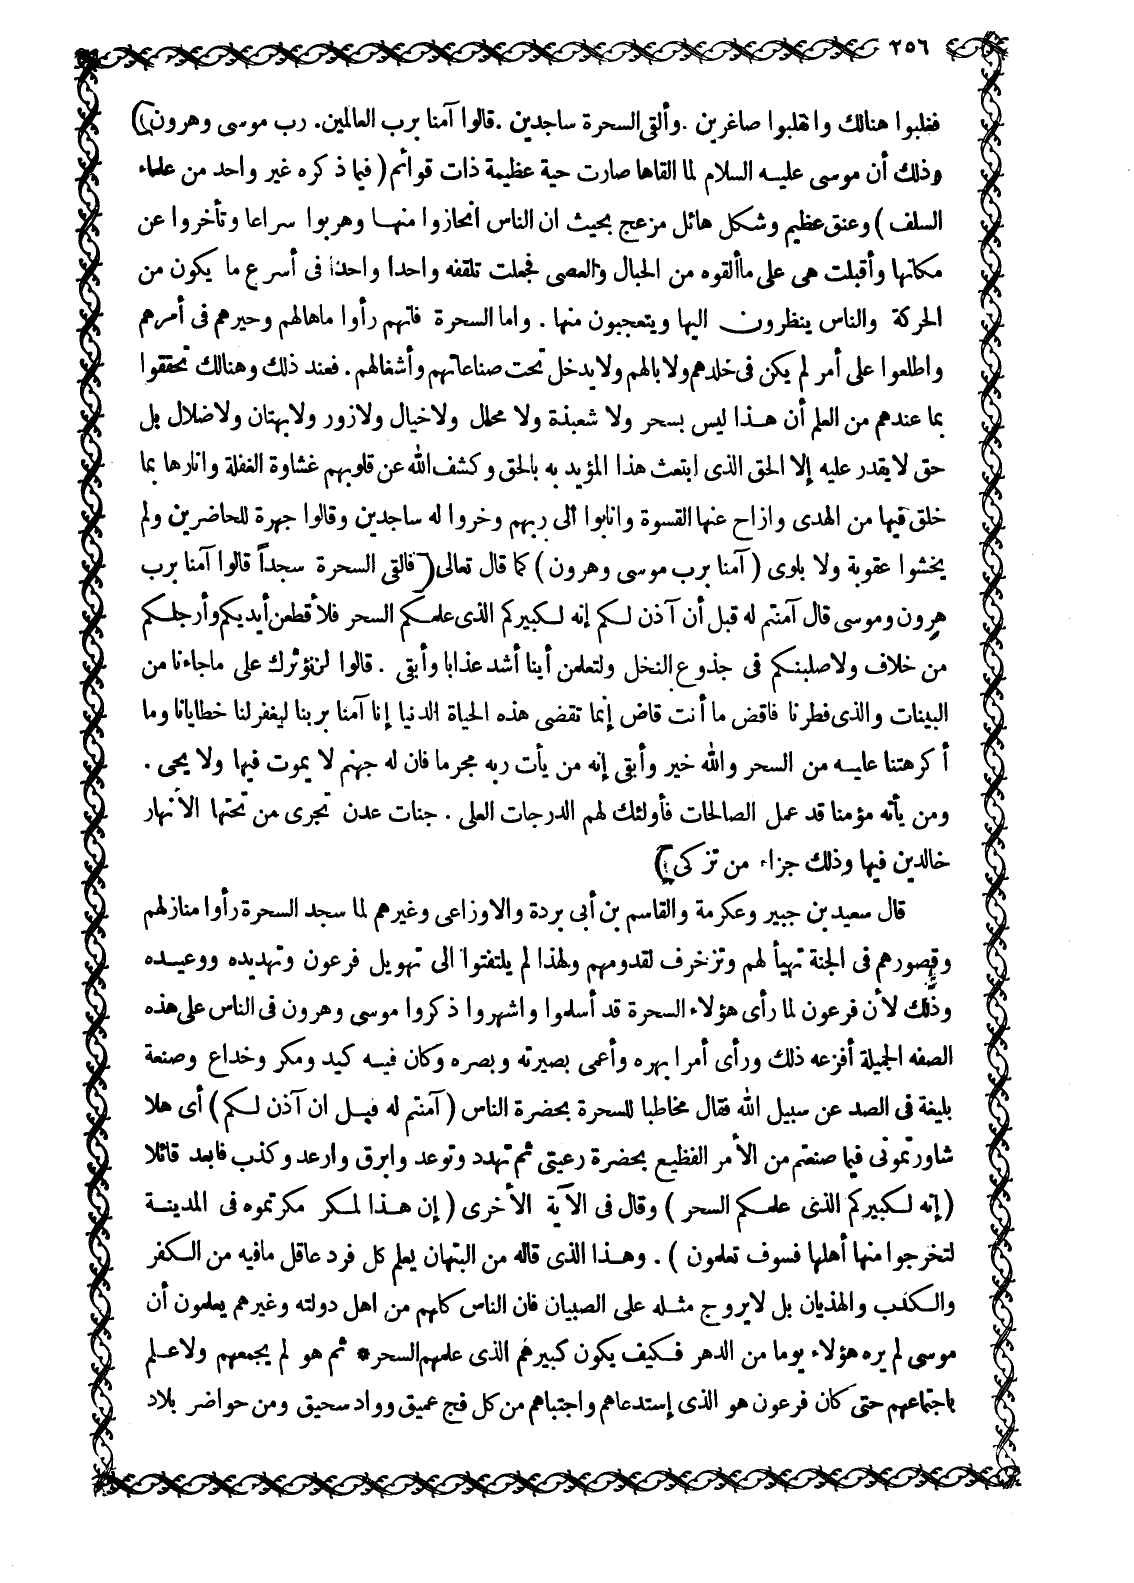 ٢٥٦
فغلبوا هنالك وانقلبوا صاغرين . وألقى السحرة ساجدين . قالوا آمنا برب العالمين . رب موسى وهرون )
وذلك أن موسى عليه السلام لما القاها صارت حية عظيمة ذات قوائم ( فيما ذكره غير واحد من علماء
السلف ) وعنق عظيم وشكل هائل مزعج بحيث ان الناس انحازوا منها وهربوا سراعا وتأخروا عن
مكانها وأقبلت هى على ما ألقوه من الحبال والعصى فجعلت تلقفه واحدا واحدا فى أسرع ما يكون من
الحركة والناس ينظرون اليها ويتعجبون منها . واما السحرة فانهم رأوا ماهالهم وحيرهم فى أمرهم
واطلعوا على أمر لم يكن فى خلدهم ولا بالهم ولا يدخل تحت صناعاتهم وأشغالهم . فعند ذلك وهنالك تحققوا
بما عندهم من العلم أن هذا ليس بسحر ولا شعبذة ولا محال ولا خيال ولا زور ولا بهتان ولا ضلال بل
حق لا يقدر عليه إلا الحق الذى ابتعث هذا المؤيد به بالحق وكشف الله عن قلوبهم غشاوة الغفلة وانارها بما
خلق فيها من الهدى وازاح عنها القسوة وانابوا الى ربهم وخروا له ساجدين وقالوا جهرة للحاضرين ولم
يخشوا عقوبة ولا بلوى ( آمنا برب موسى وهرون ) كما قال تعالى ( فالقى السحرة سجداً قالوا آمنا برب
هرون وموسى قال آمنتم له قبل أن آذن لكم إنه لكبيركم الذى علمكم السحر فلأقطعن أيديكم وأرجلكم
من خلاف ولاصلبنكم فى جذوع النخل ولتعلمن أينا أشد عذابا وأبقى . قالوا لن نؤثرك على ماجاءنا من
البينات والذى فطرنا فاقض ما أنت قاض إنما تقضى هذه الحياة الدنيا إنا آمنا بربنا ليغفر لنا خطايانا وما
أكرهتنا عليه من السحر والله خير وأبقى إنه من يأت ربه مجرما فان له جهنم لا يموت فيها ولا يحيى .
ومن يأته مؤمنا قد عمل الصالحات فأولئك لهم الدرجات العلى . جنات عدن تجرى من تحتها الأنهار
خالدين فيها وذلك جزاء من تزكى )
قال سعيد بن جبير وعكرمة والقاسم بن أبى بردة والاوزاعى وغيرهم لما سجد السحرة رأوا منازلهم
وقصورهم فى الجنة تهيأ لهم وتزخرف لقدومهم ولهذا لم يلتفتوا الى تهويل فرعون وتهديده ووعيده
وذلك لأن فرعون لما رأى هؤلاء السحرة قد أسلموا واشهروا ذكروا موسى وهرون فى الناس على هذه
الصفه الجميلة أفزعه ذلك ورأى أمرا بهره وأعمى بصيرته وبصره وكان فيه كيد ومكر وخداع وصنعة
بليغة فى الصد عن سبيل الله فقال مخاطبا للسحرة بحضرة الناس ( آمنتم له قبل ان آذن لكم ) أى هلا
شاورتمونى فيما صنعتم من الأمر الفظيع بحضرة رعيتى ثم تهدد وتوعد وابرق وارعد وكذب فابعد قائلا
( إنه لكبيركم الذى علمكم السحر ) وقال فى الآية الأخرى ( إن هذا لمكر مكرتموه فى المدينة
لتخرجوا منها أهلها فسوف تعلمون ) . وهذا الذى قاله من البهتان يعلم كل فرد عاقل مافيه من الكفر
والكذب والهذيان بل لا يروج مثله على الصبيان فان الناس كلهم من اهل دولته وغيرهم يعلمون أن
موسى لم يره هؤلاء يوما من الدهر فكيف يكون كبيرهم الذى علمهم السحر * ثم هو لم يجمعهم ولا علم
باجتماعهم حتى كان فرعون هو الذى إستدعاهم واجتباهم من كل فج عميق وواد سحيق ومن حواضر بلاد